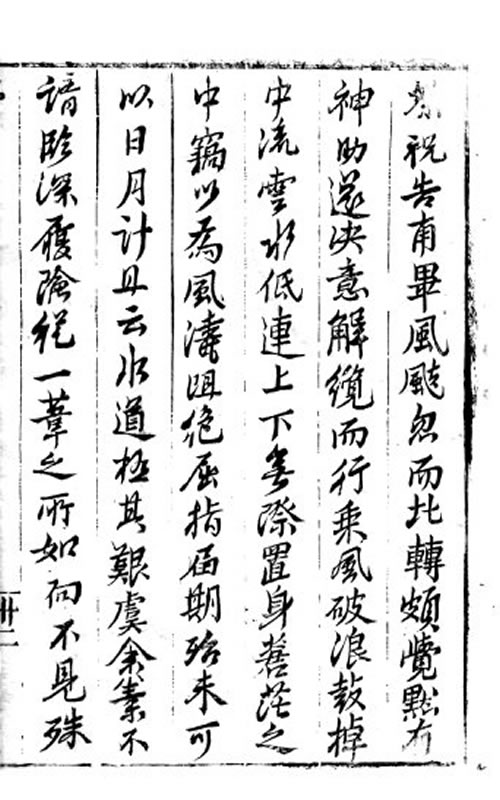 祭祝告甫畢風颷忽而北轉頗覺黙有
神助遂决意解纜而行乘風破浪鼓掉
中流雲水低連上下無際置身蒼茫之
中竊以為風濤阻絶屈指届期殆未可
以日月計且云水道極其艱虞余素不
諳臨深履險縱一葦之所如而不見殊
卅二